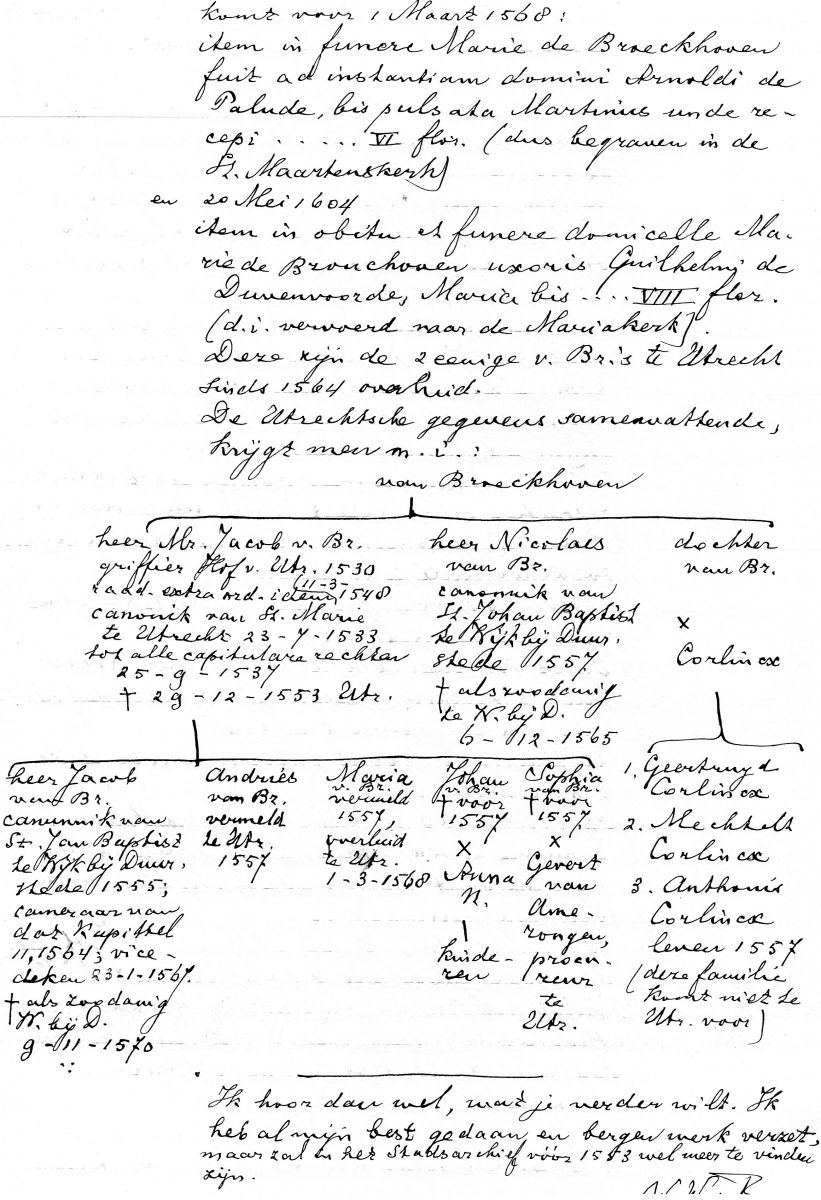 komt voor 1 Maart 1568:
item in funere Marie de Broeckhoven
fuit ad instantiam domini Arnoldi de
Palude, bis pulsata Martinus unde re-
cepi ...... VI flor. (dus begraven in de
St. Maartenskerk)
en 20 Mei 1604
item in obitu et funere domicelle Ma-
rie de Bronchoven uxoris Guilhelmi de
Duvenvoorde, Maria bis .... VIII flor.
(d.i. vervoerd naar de Mariakerk).
Deze zijn de 2 eenige v. Br.'s te Utrecht
sinds 1564 overluid.
De Utrechtsche gegevens samenvattende,
krijgt men m.i.:
van Broeckhoven
heer Mr. Jacob v. Br.
griffier Hof v. Utr. 1530
raad-extraord. idem 11-3-1548
canonik van St. Marie
te Utrecht 23-7-1533
tot alle capitulare rechten
25-9-1537
† 29-12-1553 Utr.
heer Nicolaes
van Br.
canonnik van
St. Johan Baptist
te Wijk bij Duur-
stede 1557
† als zoodanig
te W. bij D.
6-12-1565
dochter
van Br.
x
Corlincx
heer Jacob
van Br.
canunnik van
St. Jan Baptist
te Wijk bij Duur-
stede 1555;
cameraar van
dat Kapittel
11,1564; vice-
deken 23-1-1567.
† als zoodanig
W. bij D.
9-11-1570
Andries
van Br.
vermeld
te Utr.
1557
Maria
v. Br.
vermeld
1557,
overluid
te Utr.
1-3-1568
Johan
v. Br.
† voor
1557
x
Anna
N.
kinde-
ren
Sophia
van Br.
† voor
1557
x
Gevert
van
Ame-
rongen,
procu-
reur
te
Utr.
1. Geertruyd
Corlincx
2. Mechtelt
Corlincx
3. Anthonis
Corlincx
leven 1557
(deze familie
komt niet te
Utr. voor)
Ik hoor dan wel, wat je verder wilt. Ik
heb al mijn best gedaan en bergen werk verzet,
maar zal in het Stadsarchief vóór 1553 wel meer te vinden
zijn.